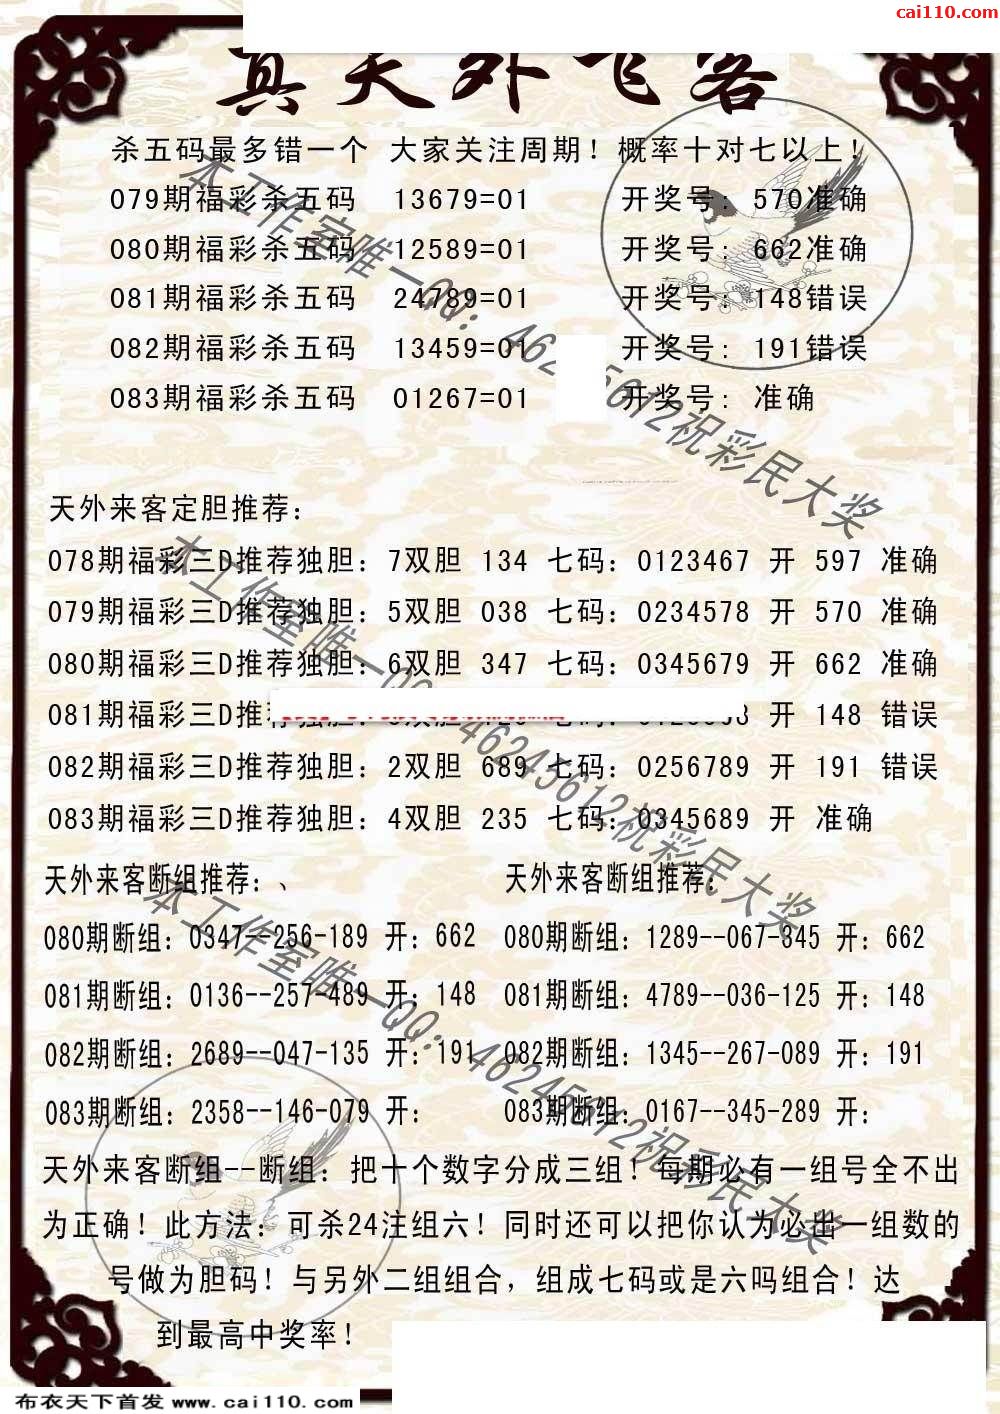 cai110.com
真天外飞客
杀五码最多错一个 大家关注周期！概率十对七以上！
079期福彩杀五码 13679=01 开奖号: 570准确
080期福彩杀五码 12589=01 开奖号: 662准确
081期福彩杀五码 24789=01 开奖号: 148错误
082期福彩杀五码 13459=01 开奖号: 191错误
083期福彩杀五码 01267=01 开奖号: 准确
天外来客定胆推荐:
078期福彩三D推荐独胆: 7双胆 134 七码: 0123467 开 597 准确
079期福彩三D推荐独胆: 5双胆 038 七码: 0234578 开 570 准确
080期福彩三D推荐独胆: 6双胆 347 七码: 0345679 开 662 准确
081期福彩三D推荐独胆: 开 148 错误
082期福彩三D推荐独胆: 2双胆 689 七码: 0256789 开 191 错误
083期福彩三D推荐独胆: 4双胆 235 七码: 0345689 开 准确
天外来客断组推荐: 、 天外来客断组推荐:
080期断组: 0347--256-189 开: 662 080期断组: 1289--067-345 开: 662
081期断组: 0136--257-489 开: 148 081期断组: 4789--036-125 开: 148
082期断组: 2689--047-135 开: 191 082期断组: 1345--267-089 开: 191
083期断组: 2358--146-079 开: 083期断组: 0167--345-289 开:
天外来客断组--断组: 把十个数字分成三组！每期必有一组号全不出
为正确！此方法: 可杀24注组六！同时还可以把你认为必出一组数的
号做为胆码！与另外二组组合，组成七码或是六吗组合！达
到最高中奖率！
本工作室唯一QQ: 46245612祝彩民大奖
本工作室唯一QQ: 46245612祝彩民大奖
本工作室唯一QQ: 46245612祝彩民大奖
布衣天下首发 www.cai110.com